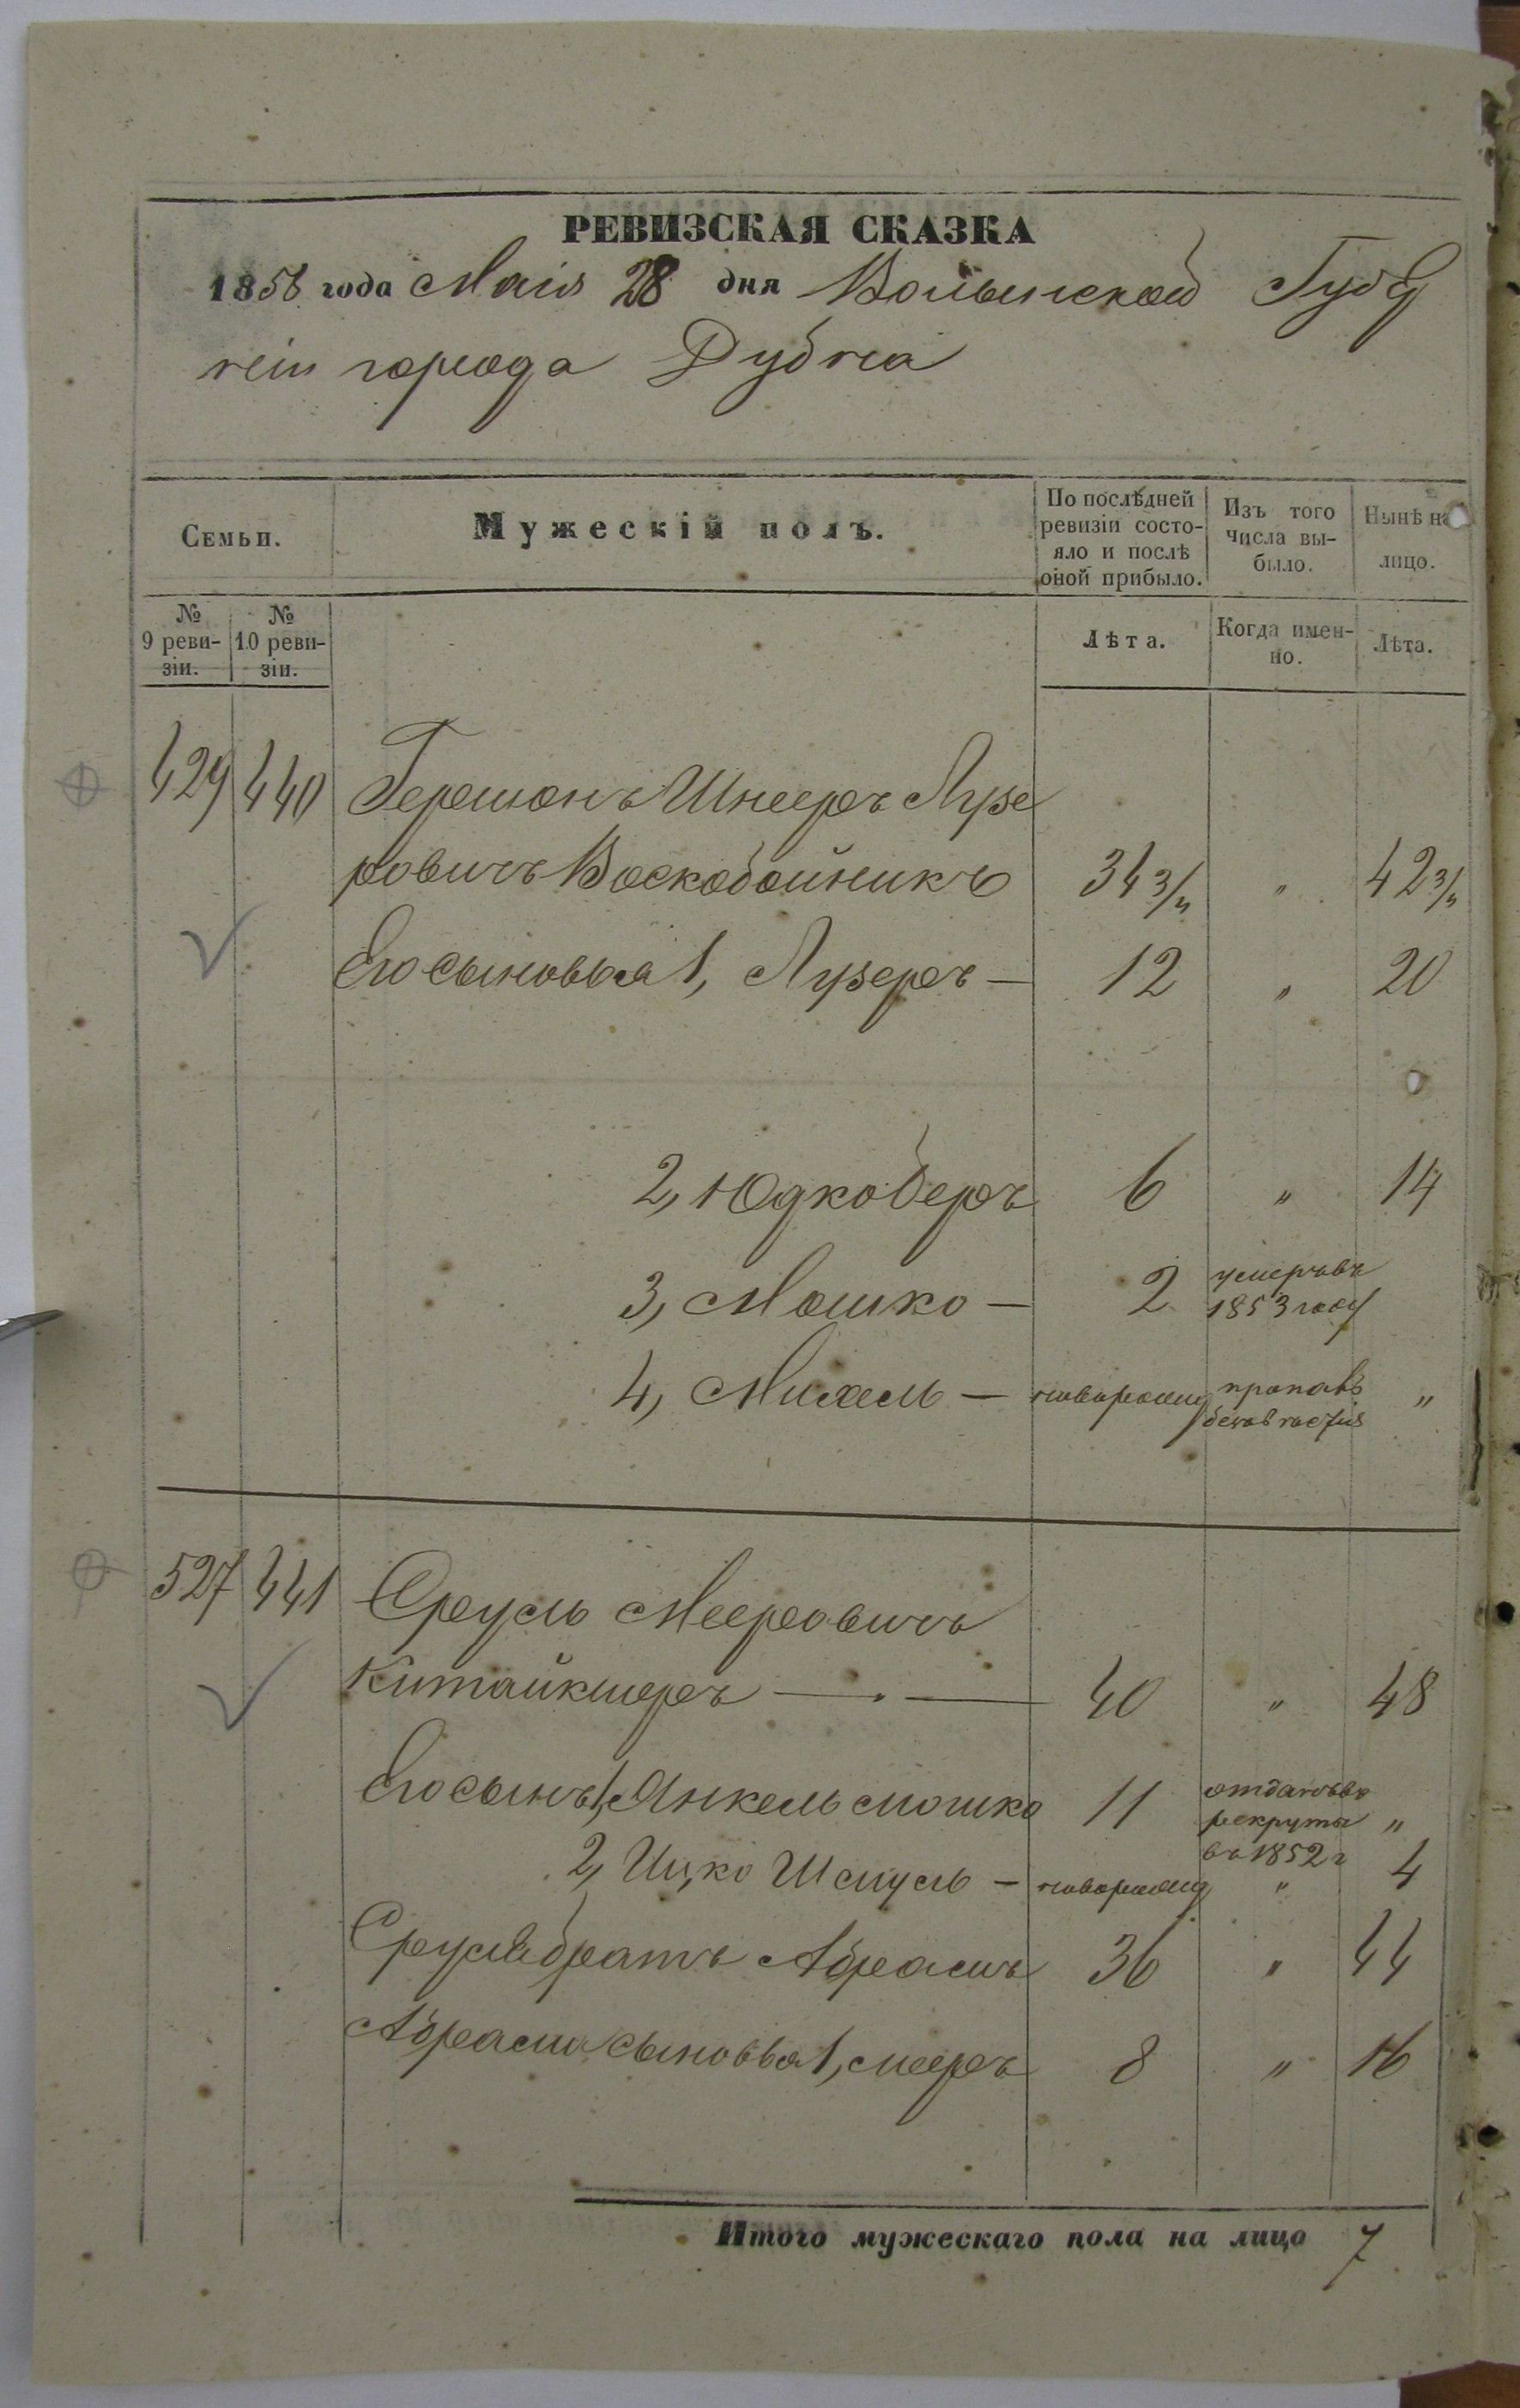 РЕВИЗСКАЯ СКАЗКА
1858 года Маія 28 дня Волынской Губер
ніи города Дубна
Семьи.
Мужескій полъ.
По послѣдней ревизіи состо-
яло и послѣ оной прибыло.
Изъ того числа вы-
было.
Нынѣ на лицо.
№ 9 реви-
зіи.
№ 10 реви-
зіи.
Лѣта.
Когда имен-
но.
Лѣта.
429 440 Гершонъ Шнееръ Лузе
ровичъ Воскобойникъ 34 3/4 " 42 3/4
Его сыновья 1, Лузеръ — 12 " 20
2, Юдко Беръ 6 " 14
3, Мошко — 2 умеръ въ 1853 году
4, Михель — новорожд пропавъ безъ вѣстія "
527 441 Сруль Мееровичъ
Китайкшеръ — . — 40 " 48
Его сынъ 1, Янкель Мошко 11 отданъ въ рекруты въ 1852 г "
2, Ицко Шмуль — новорожд " 4
Сруля братъ Абрамъ 36 " 44
Абрама сыновья 1, Мееръ 8 " 16
Итого мужескаго пола на лицо 7